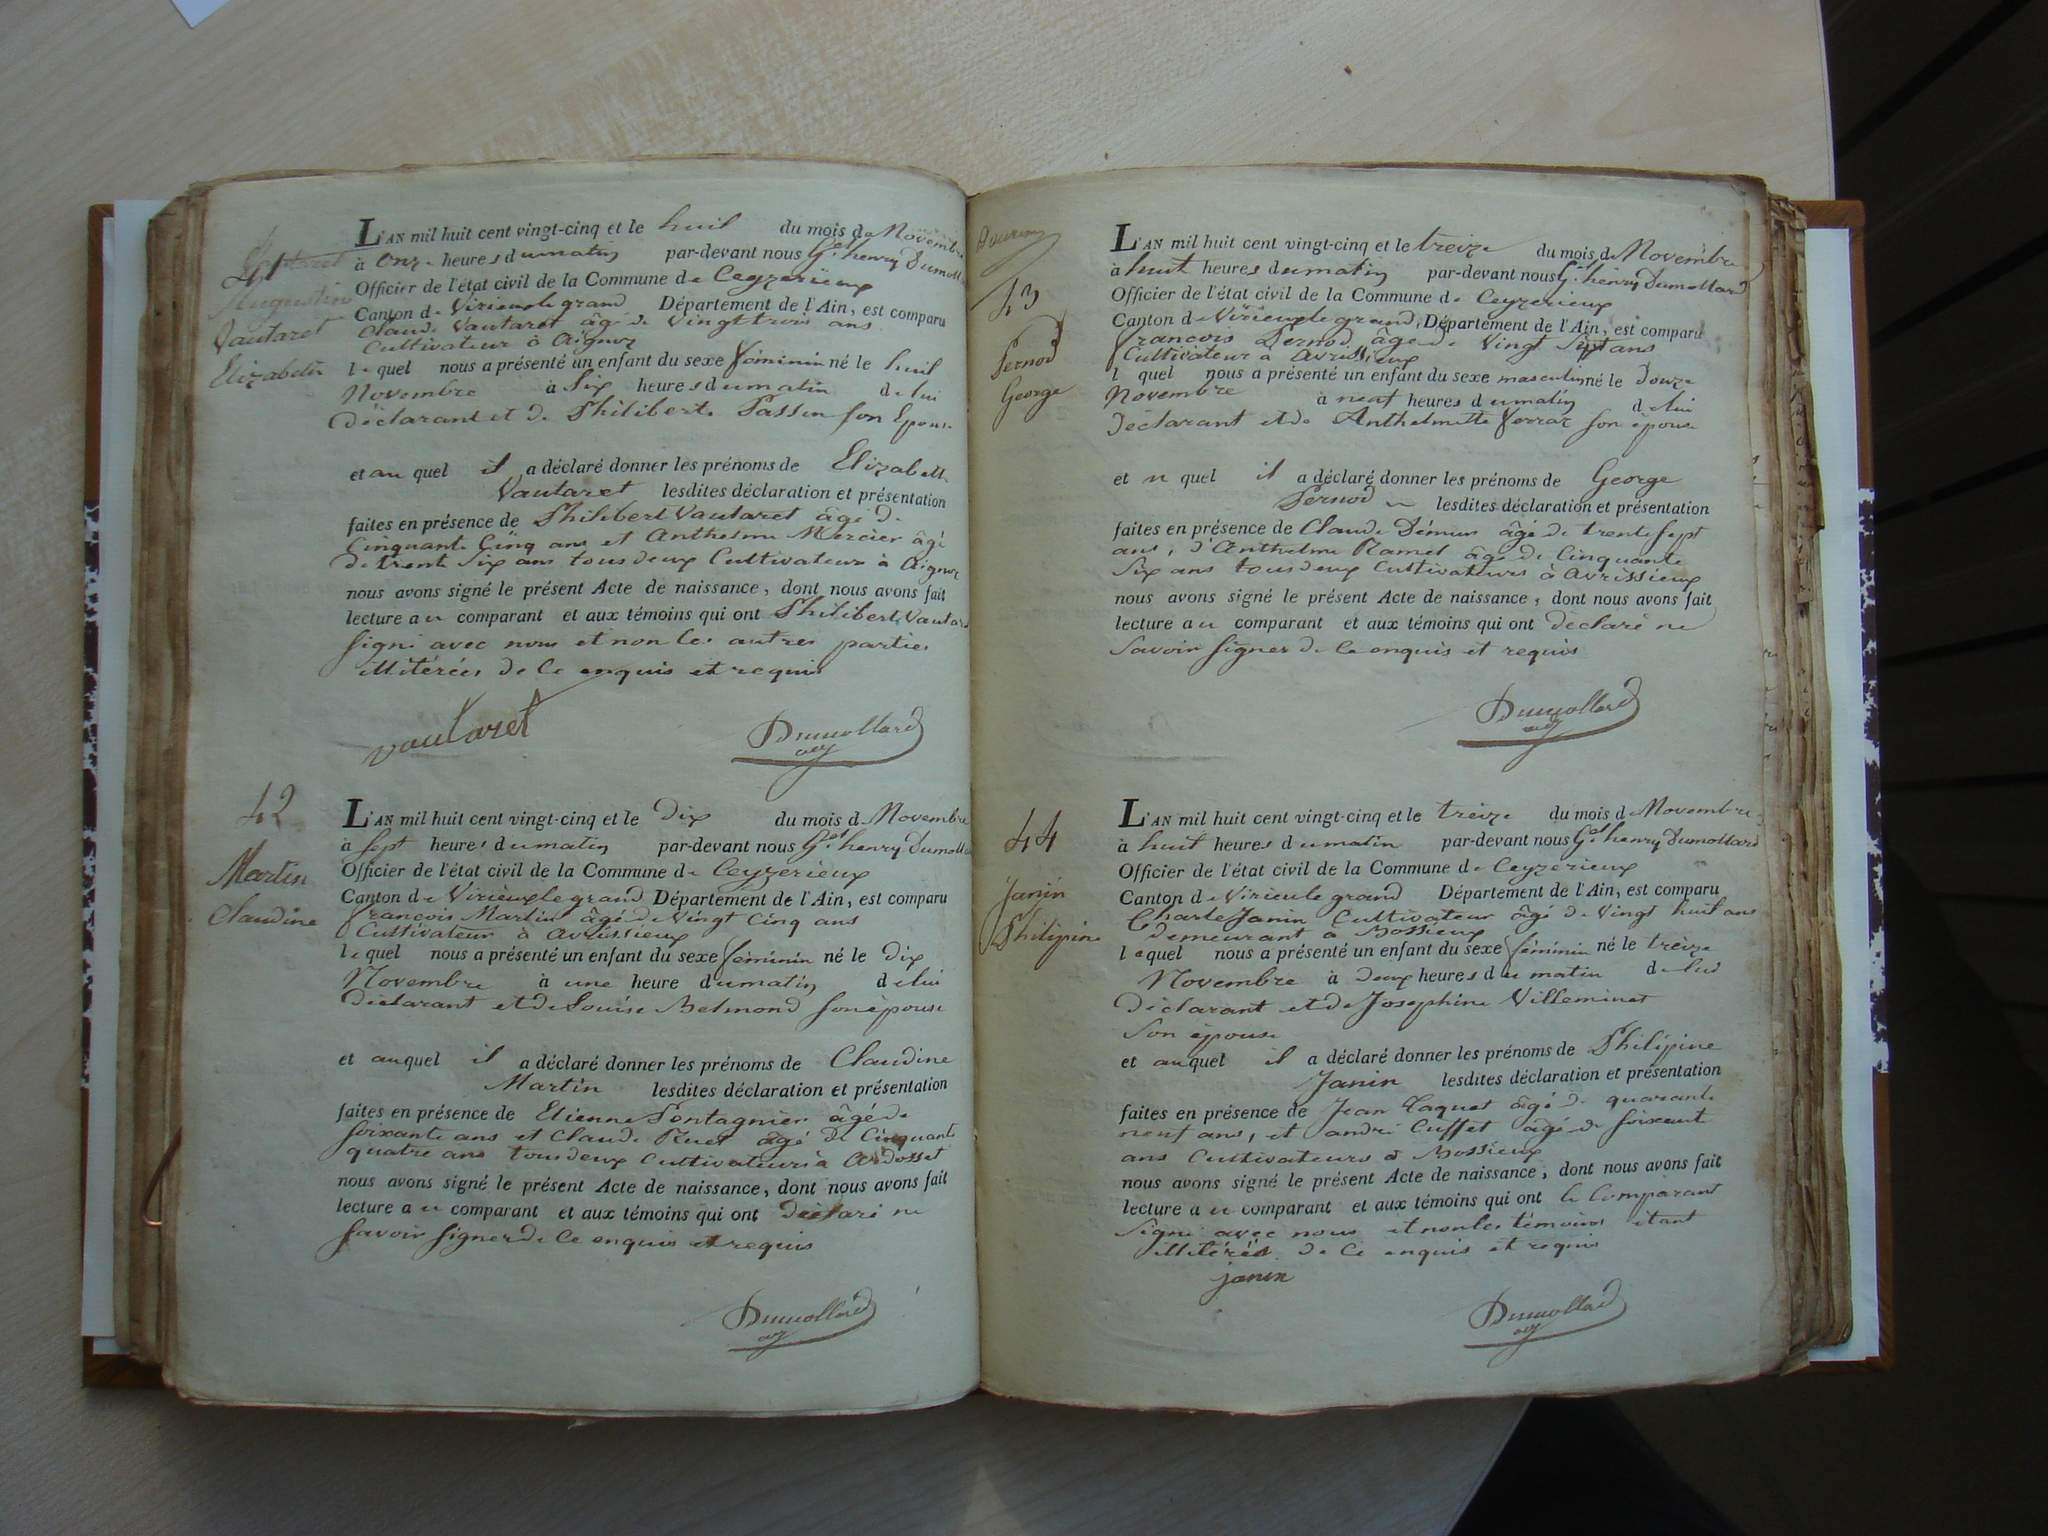 41
Augustin
Vautaret
Elizabeth
L'AN mil huit cent vingt-cinq et le huit du mois de Novembre
à onze heures du matin par-devant nous Gd. henry Dumollard
Officier de l'état civil de la Commune de Ceyzerieux
Canton de Virieu le grand Département de l'Ain, est comparu
Claude Vautaret âgé de Vingt trois ans
Cultivateur à Aignoz
le quel nous a présenté un enfant du sexe féminin né le huit
Novembre à Six heures du matin de lui
Déclarant et de Philiberte Passin son Epouse
et au quel il a déclaré donner les prénoms de Elizabeth
Vautaret lesdites déclaration et présentation
faites en présence de Philibert Vautaret âgé de
Cinquante Cinq ans et Anthelme Mercier âgé
de trente Six ans tous deux Cultivateurs à Aignoz
nous avons signé le présent Acte de naissance, dont nous avons fait
lecture au comparant et aux témoins qui ont Philibert Vautaret
signé avec nous et non les autres parties
illitérées de ce enquis et requis
vautaret
Dumollard
42
Martin
Claudine
L'AN mil huit cent vingt-cinq et le dix du mois de Novembre
à sept heures du matin par-devant nous Gd. henry Dumollard
Officier de l'état civil de la Commune de Ceyzerieux
Canton de Virieux le grand Département de l'Ain, est comparu
François Martin âgé de Vingt Cinq ans
Cultivateur à Avrissieux
le quel nous a présenté un enfant du sexe féminin né le dix
Novembre à une heure du matin de lui
Déclarant et de Louise Belmond son épouse
et au quel il a déclaré donner les prénoms de Claudine
Martin lesdites déclaration et présentation
faites en présence de Etienne Pontagnier âgé de
soixante ans et Claude Ruet âgé de Cinquante
quatre ans tous deux Cultivateurs à Ardosset
nous avons signé le présent Acte de naissance, dont nous avons fait
lecture au comparant et aux témoins qui ont déclaré ne
savoir signer de ce enquis et requis
Dumollard
43
Pernod
George
L'AN mil huit cent vingt-cinq et le treize du mois de Novembre
à huit heures du matin par-devant nous Gd. henry Dumollard
Officier de l'état civil de la Commune de Ceyzerieux
Canton de Virieux le grand, Département de l'Ain, est comparu
françois Pernod âgé de Vingt Sept ans
Cultivateur à Avrissieux
l quel nous a présenté un enfant du sexe masculin né le Douze
Novembre à neuf heures du matin de lui
Déclarant et de Anthelmette Ferrar son épouse
et u quel il a déclaré donner les prénoms de George
Pernod lesdites déclaration et présentation
faites en présence de Claude Démur âgé de trente sept
ans, d'Anthelme Ramel âgé de Cinquante
Six ans tous deux Cultivateurs à Avrissieux
nous avons signé le présent Acte de naissance, dont nous avons fait
lecture au comparant et aux témoins qui ont déclaré ne
Savoir signer de ce enquis et requis
Dumollard
44
Janin
Philipine
L'AN mil huit cent vingt-cinq et le treize du mois de Novembre
à huit heures du matin par-devant nous Gd. henry Dumollard
Officier de l'état civil de la Commune de Ceyzerieux
Canton de Virieu le grand Département de l'Ain, est comparu
Charle Janin Cultivateur âgé de Vingt huit ans
demeurant à Bossieux
le quel nous a présenté un enfant du sexe féminin né le treize
Novembre à deux heures du matin de lui
Déclarant et de Josephine Villeminet
Son épouse
et au quel il a déclaré donner les prénoms de Philipine
Janin lesdites déclaration et présentation
faites en présence de Jean Taquet âgé de quarante
neuf ans, et andré Cuffet âgé de soixente
ans Cultivateurs à Bossieux
nous avons signé le présent Acte de naissance, dont nous avons fait
lecture au comparant et aux témoins qui ont le Comparant
signé avec nous et non les témoins étant
illitérés de ce enquis et requis
janin
Dumollard